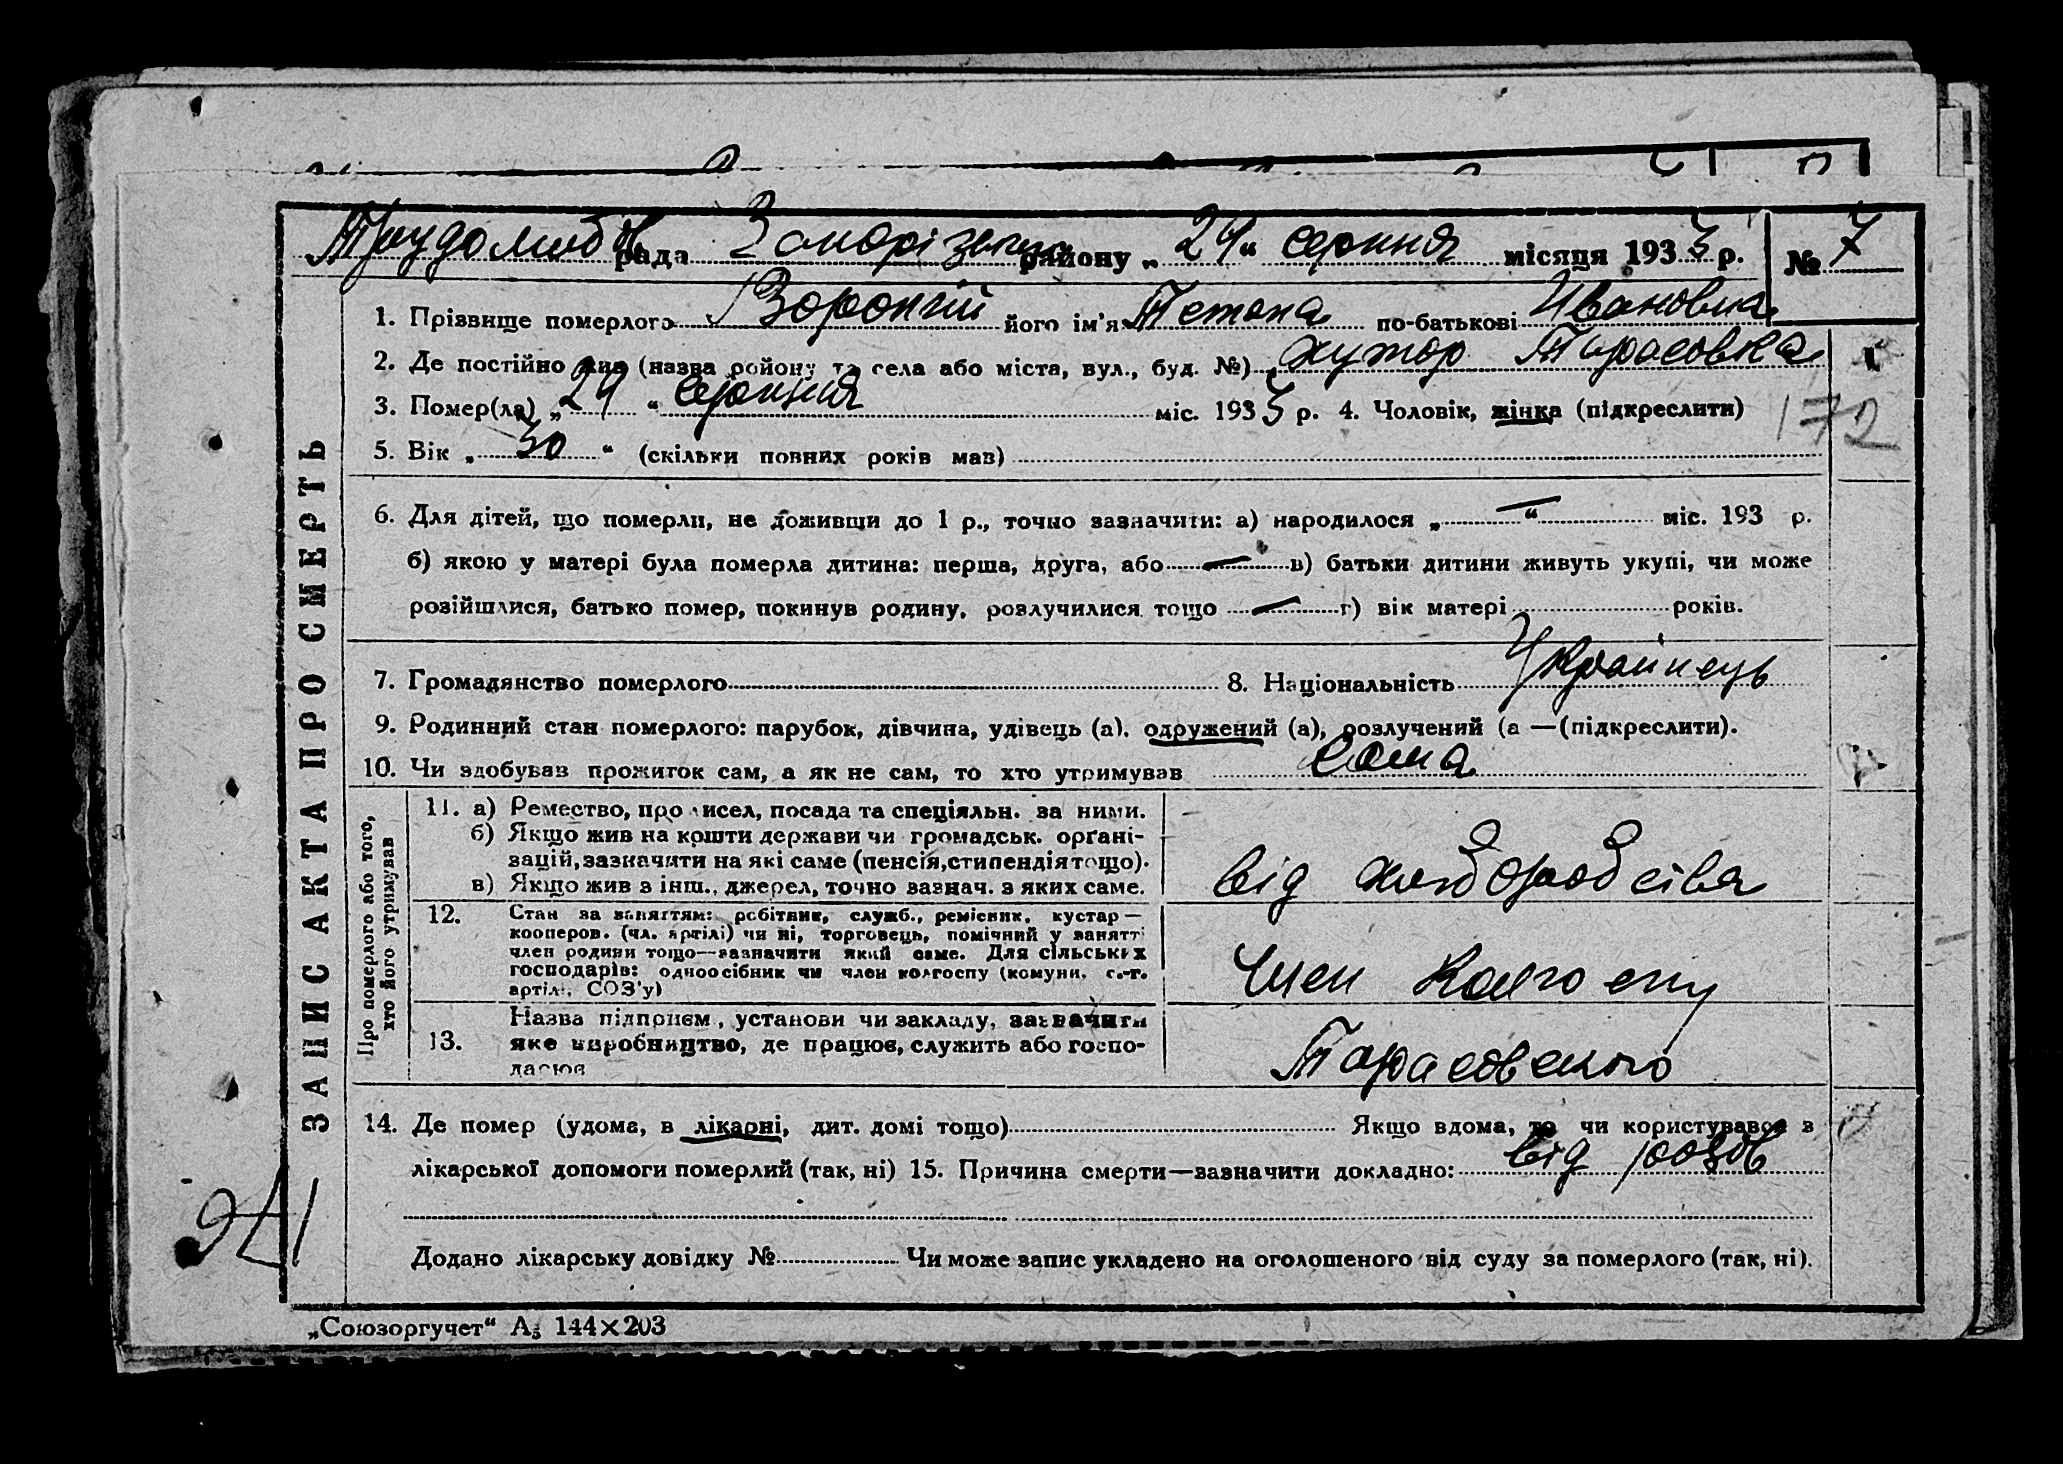 Трудолюбів рада Запорізьког району „24“ серпня місяця 1933 р. № 7
1. Прізвище померлого Воропай його ім'я Тетяна по-батькові Ивановна
2. Де постійно жив (назва району та села або міста, вул., буд. №) хутор Тарасовка
3. Помер(ла) „24“ серпня міс. 1933 р. 4. Чоловік, жінка (підкреслити)
172
5. Вік „30“ (скільки повних років мав)
6. Для дітей, що померли, не доживши до 1 р., точно зазначити: а) народилося „—“ міс. 193 р.
б) якою у матері була померла дитина: перша, друга, або — в) батьки дитини живуть укупі, чи може
розійшлися, батько помер, покинув родину, розлучилися тощо — г) вік матері років.
7. Громадянство померлого 8. Національність Українець
9. Родинний стан померлого: парубок, дівчина, удівець (а), одружений (а), розлучений (а —(підкреслити).
10. Чи здобував прожиток сам, а як не сам, то хто утримував сама
ЗАПИС АКТА ПРО СМЕРТЬ
Про померлого або того,
хто його утримував
11. а) Ремество, промисел, посада та спеціяльн. за ними.
б) Якщо жив на кошти держави чи громадськ. органі-
зацій, зазначити на які саме (пенсія, стипендія тощо).
в) Якщо жив з інш., джерел, точно зазнач. з яких саме.
від хліборобства
12. Стан за заняттям: робітник, служб., ремісник, кустар —
кооперов. (чл. артілі) чи ні, торговець, помічний у занятті
член родини тощо—зазначити який саме. Для сільських
господарів: одноосібник чи член колгоспу (комуни, с.-г.
артілі, СОЗ'у)
Член колгоспу
13. Назва підприєм., установи чи закладу, зазначити
яке виробництво, де працює, служить або госпо-
дарює
Тарасовского
14. Де помер (удома, в лікарні, дит. домі тощо) Якщо вдома, то чи користувався з
лікарської допомоги померлий (так, ні) 15. Причина смерти—зазначити докладно: від
Додано лікарську довідку № Чи може запис укладено на оголошеного від суду за померлого (так, ні).
„Союзоргучет“ А5 144×203